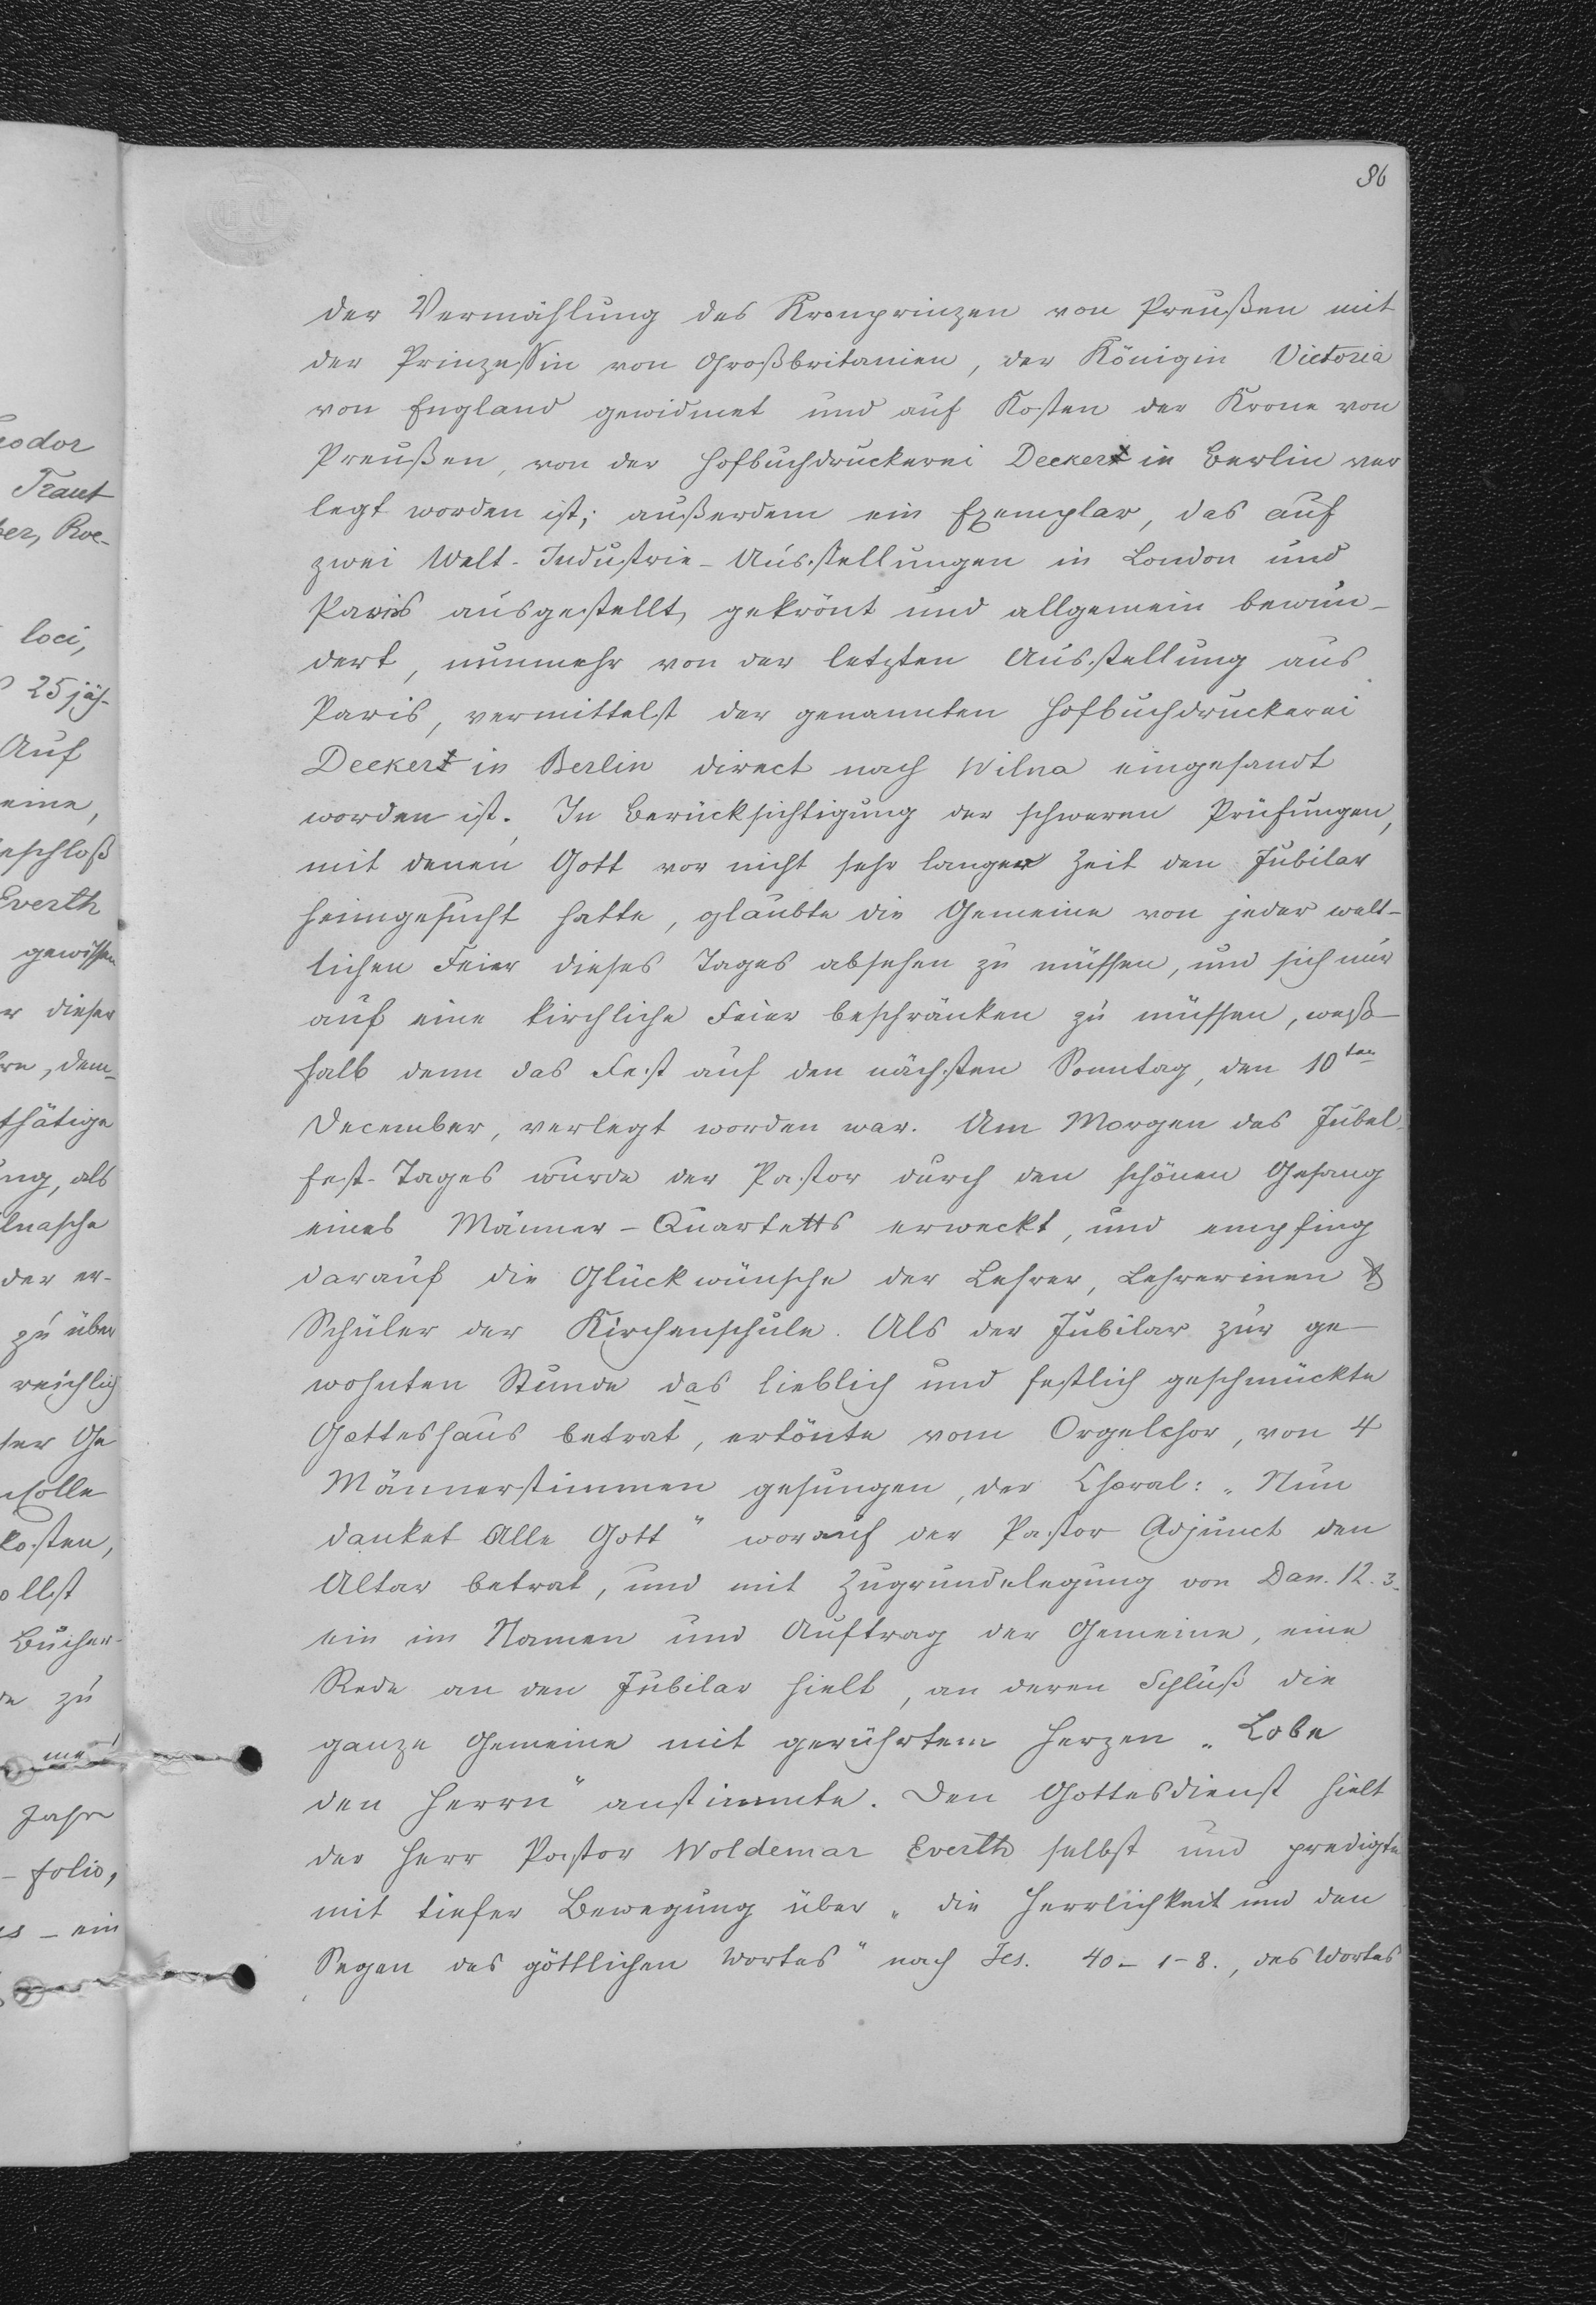 86
der Vermählung des Kronprinzen von Preußen mit
der Prinzessin von Großbritanien, der Königin Victoria
von England gewidmet und auf Kosten der Krone von
Preußen, von der Hofbuchdruckerei Decker in Berlin ver
legt worden ist; außerdem ein Exemplar, das auf
zwei Welt-Industrie-Ausstellungen in London und
Paris ausgestellt, gekrönt und allgemein bewun-
dert, nunmehr von der letzten Ausstellung aus
Paris, vermittelst der genannten Hofbuchdruckerei
Decker in Berlin direct nach Wilna eingesandt
worden ist. In Berücksichtigung der schweren Prüfungen,
mit denen Gott vor nicht sehr langer Zeit den Jubilar
heimgesucht hatte, glaubte die Gemeine von jeder welt-
lichen Feier dieses Tages absehen zu müssen, und sich nur
auf eine kirchliche Feier beschränken zu müssen, weß-
halb denn das Fest auf den nächsten Sonntag, den 10ten
December, verlegt worden war. Am Morgen des Jubel-
fest-Tages wurde der Pastor durch den schönen Gesang
eines Männer-Quartetts erweckt, und empfing
darauf die Glückwünsche der Lehrer, Lehrerinen &
Schüler der Kirchenschule. Als der Jubilar zur ge-
wohnten Stunde das lieblich und festlich geschmückte
Gotteshaus betrat, ertönte vom Orgelchor, von 4
Männerstimmen gesungen, der Choral: „Nun
danket Alle Gott" worauf der Pastor Adjunct den
Altar betrat, und mit Zugrundelegung von Dan. 12.3.
ein im Namen und Auftrag der Gemeine, eine
Rede an den Jubilar hielt, an deren Schluß die
ganze Gemeine mit gerührtem Herzen „Lobe
den Herrn" anstimmte. Den Gottesdienst hielt
der Herr Pastor Woldemar Everth selbst und predigte
mit tiefer Bewegung über „die Herrlichkeit und den
Segen des göttlichen Wortes" nach Jes. 40-1-8., des Wortes